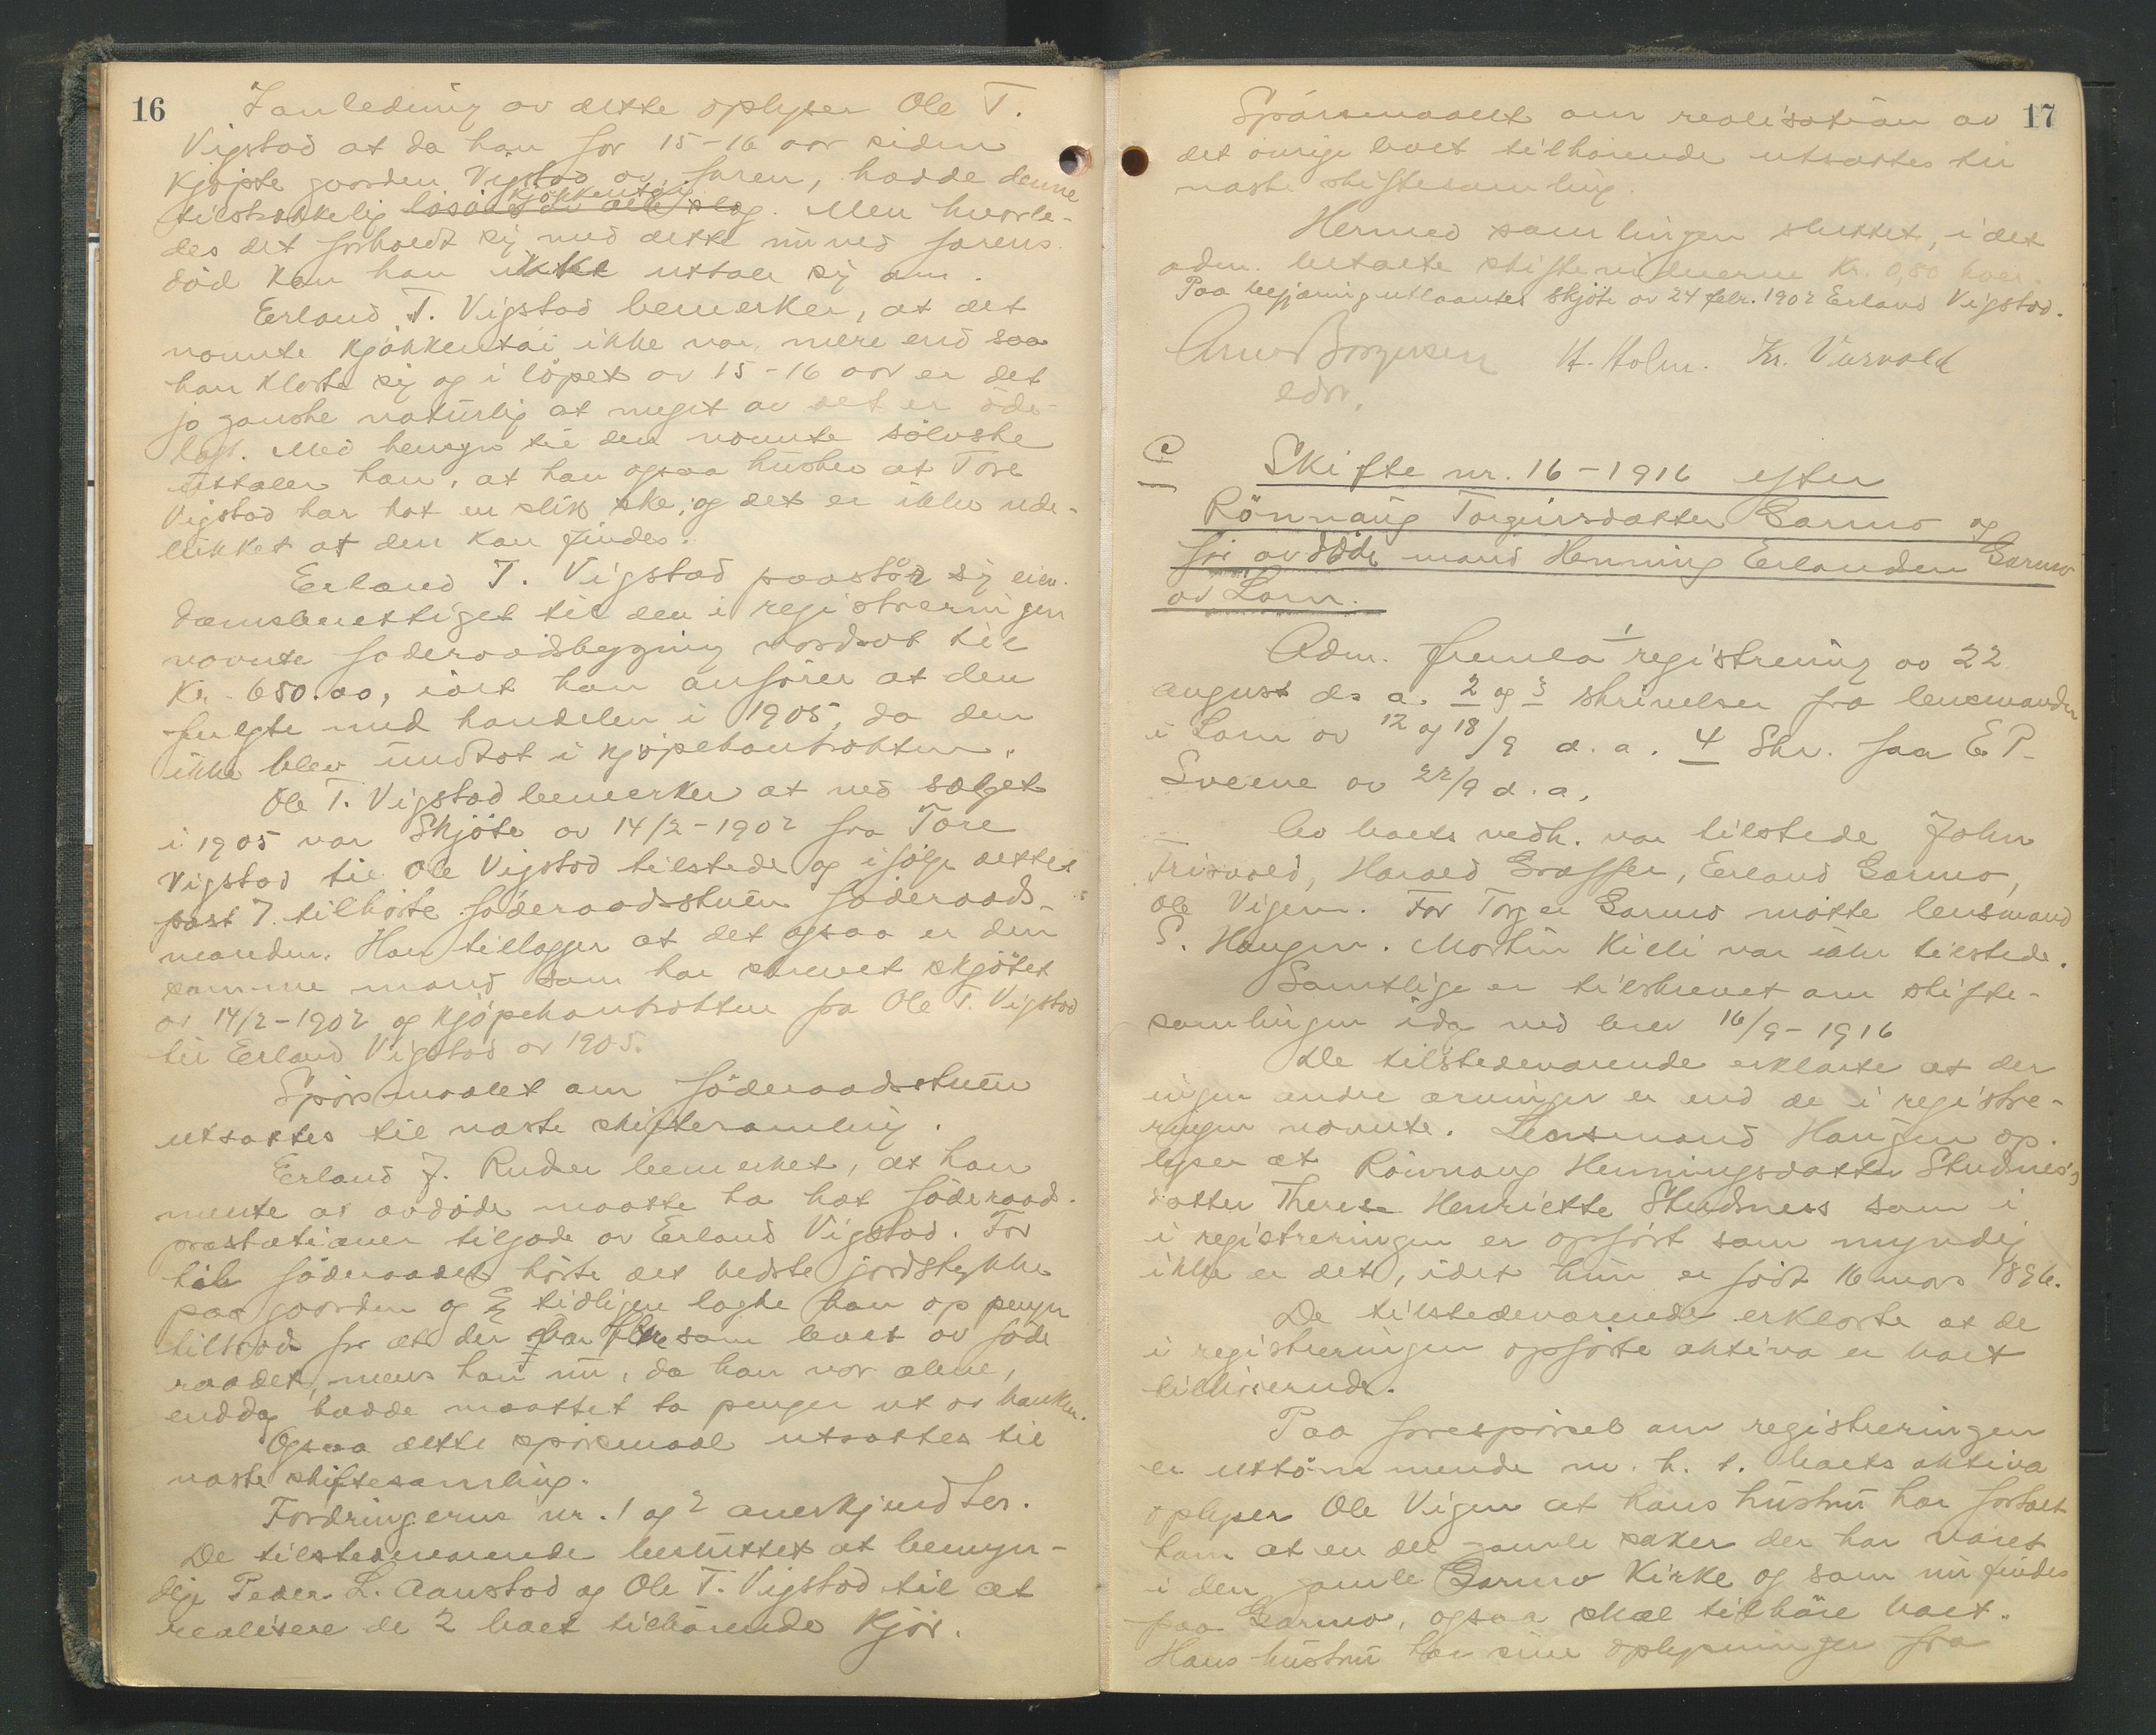 16
I anledning av dette oplyser Ole T.
Vigstad at da han for 15-16 aar siden
kjøpte gaarden Vigstad av faren, hadde denne
tilstrækkelig løsøre av alle slag kjøkkentøi. Men hvorle-
des det forholdt sig med dette nu ved farens
død kan han ikke uttale sig om.
Erland T. Vigstad bemerker, at det
nævnte kjøkkentøi ikke var mere end saa
han klarte sig og i løpet av 15-16 aar er det
jo ganske naturlig at meget av det er øde-
lagt. Med hensyn til den nævnte sølvske
uttaler han, at han ogsaa husker at Tore
Vigstad har hat en slik ske, og det er ikke ude-
lukket at den kan findes.
Erland T. Vigstad paastår sig eien-
domsberettiget til den i registreringen
nævnte føderaadsbygning værdsat til
Kr. 650.00, idet han anfører at den
fulgte med handelen i 1905, da den
ikke blev undtat i kjøpekontrakten.
Ole T. Vigstad bemerker at ved salget
i 1905 var Skjøte av 14/2-1902 fra Tore
Vigstad til Ole Vigstad tilstede og ifølge dettes
post 7 tilhørte føderaadsstuen føderaads-
manden. Han tillægger at det ogsaa er den
samme mand som har skrevet skjøtet
av 14/2-1902 og kjøpekontrakten fra Ole T. Vigstad
til Erland Vigstad av 1905.
Spørsmaalet om føderaadsstuen
utsættes til næste skiftesamling.
Erland J. Ruder bemerket, at han
mente at avdøde maatte ha hat føderaads-
præstationer tilgode av Erland Vigstad. For
til føderaadet hørte det bedste jordstykke
paa gaarden og tidligere lagde han op penger
tiltrods for at der var flere som levet av føde
raadet, mens han nu, da han var alene,
endda hadde maattet ta penger ut av banken.
Ogsaa dette spørsmaal utsættes til
næste skiftesamling.
Fordringerne nr. 1 og 2 anerkjendtes.
De tilstedeværende besluttet at bemyn-
dige Peder L. Aanstad og Ole T. Vigstad til at
realisere de 2 boet tilhørende kjør.
17
Spørsmaalet om realisation av
det øvrige boet tilhørende utsættes til
næste skiftesamling.
Hermed samlingen sluttet, idet
adm. betalte skiftevidnerne Kr. 0,80 hver.
Paa begjæring utlaantes skjøte av 24 febr. 1902 Erland Vigstad.
Arne Borgersen H. Holm. Kr. Vurvold
edsv.
Skifte nr. 16-1916 efter
Rønnaug Torgeirsdatter Garmo og
før avdøde mand Henning Erlandsen Garmo
av Lom.
Adm. fremla 1 registrering av 22
august ds a. 2 og 3 skrivelser fra lensmanden
i Lom av 12 og 18/9 d. a. 4 Skr. fra E P.
Sveine av 22/9 d. a.
Av boets vedk. var tilstede John
Trisvold, Harald Graffer, Erland Garmo,
Ole Vigen. For Torger Garmo møtte lensmand
S. Haugen. Morten Killi var ikke tilstede.
Samtlige er tilskrevet om skifte-
samlingen idag ved brev 16/9-1916
De tilstedeværende erklærte at der
ingen andre arvinger er end de i registre-
ringen nævnte. Lensmand Haugen op-
lyser at Rønnaug Henningsdatter Studnes's
datter Therese Henriette Studness som i
i registreringen er opført som myndig
ikke er det, idet hun er født 16 mars 1896.
De tilstedeværende erklærte at de
i registreringen opførte aktiva er boet
tilhørende.
Paa forespørsel om registreringen
er uttømmende m. h. t. boets aktiva
oplyser Ole Vigen at hans hustru har fortalt
ham at en del gamle saker der har været
i den gamle Garmo Kirke og som nu findes
paa Garmo, ogsaa skal tilhøre boet.
Hans hustru har sine oplysninger fra